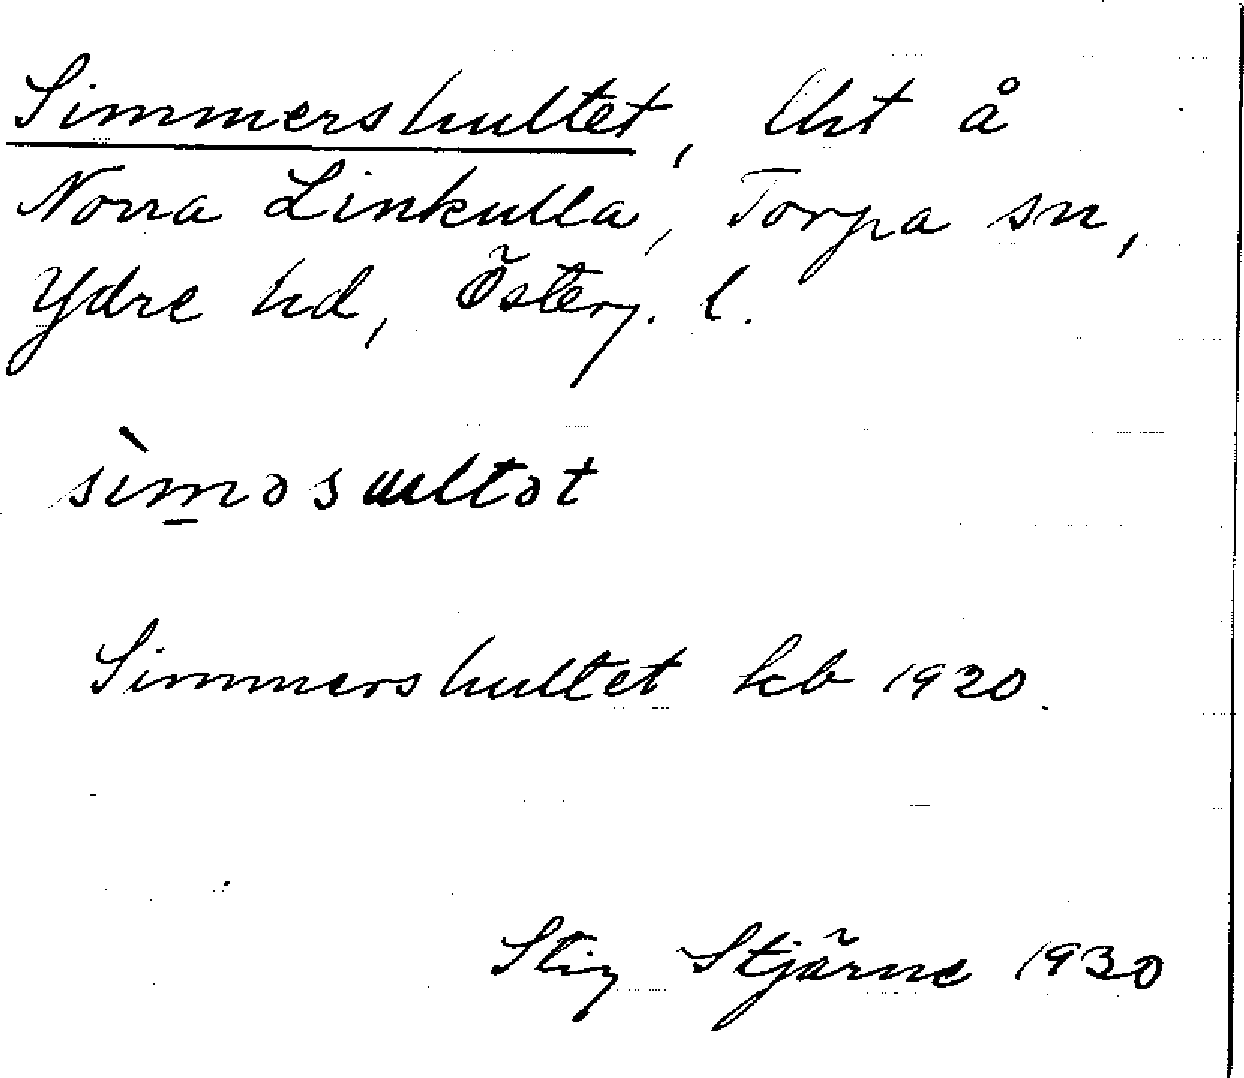 Simmershultet, lht å
Norra Linkulla, Torpa sn,
Ydre hd, Österg. l.
sìm̲əsɯltət
Simmershultet kb 1920.
Stig Stjärne 1930